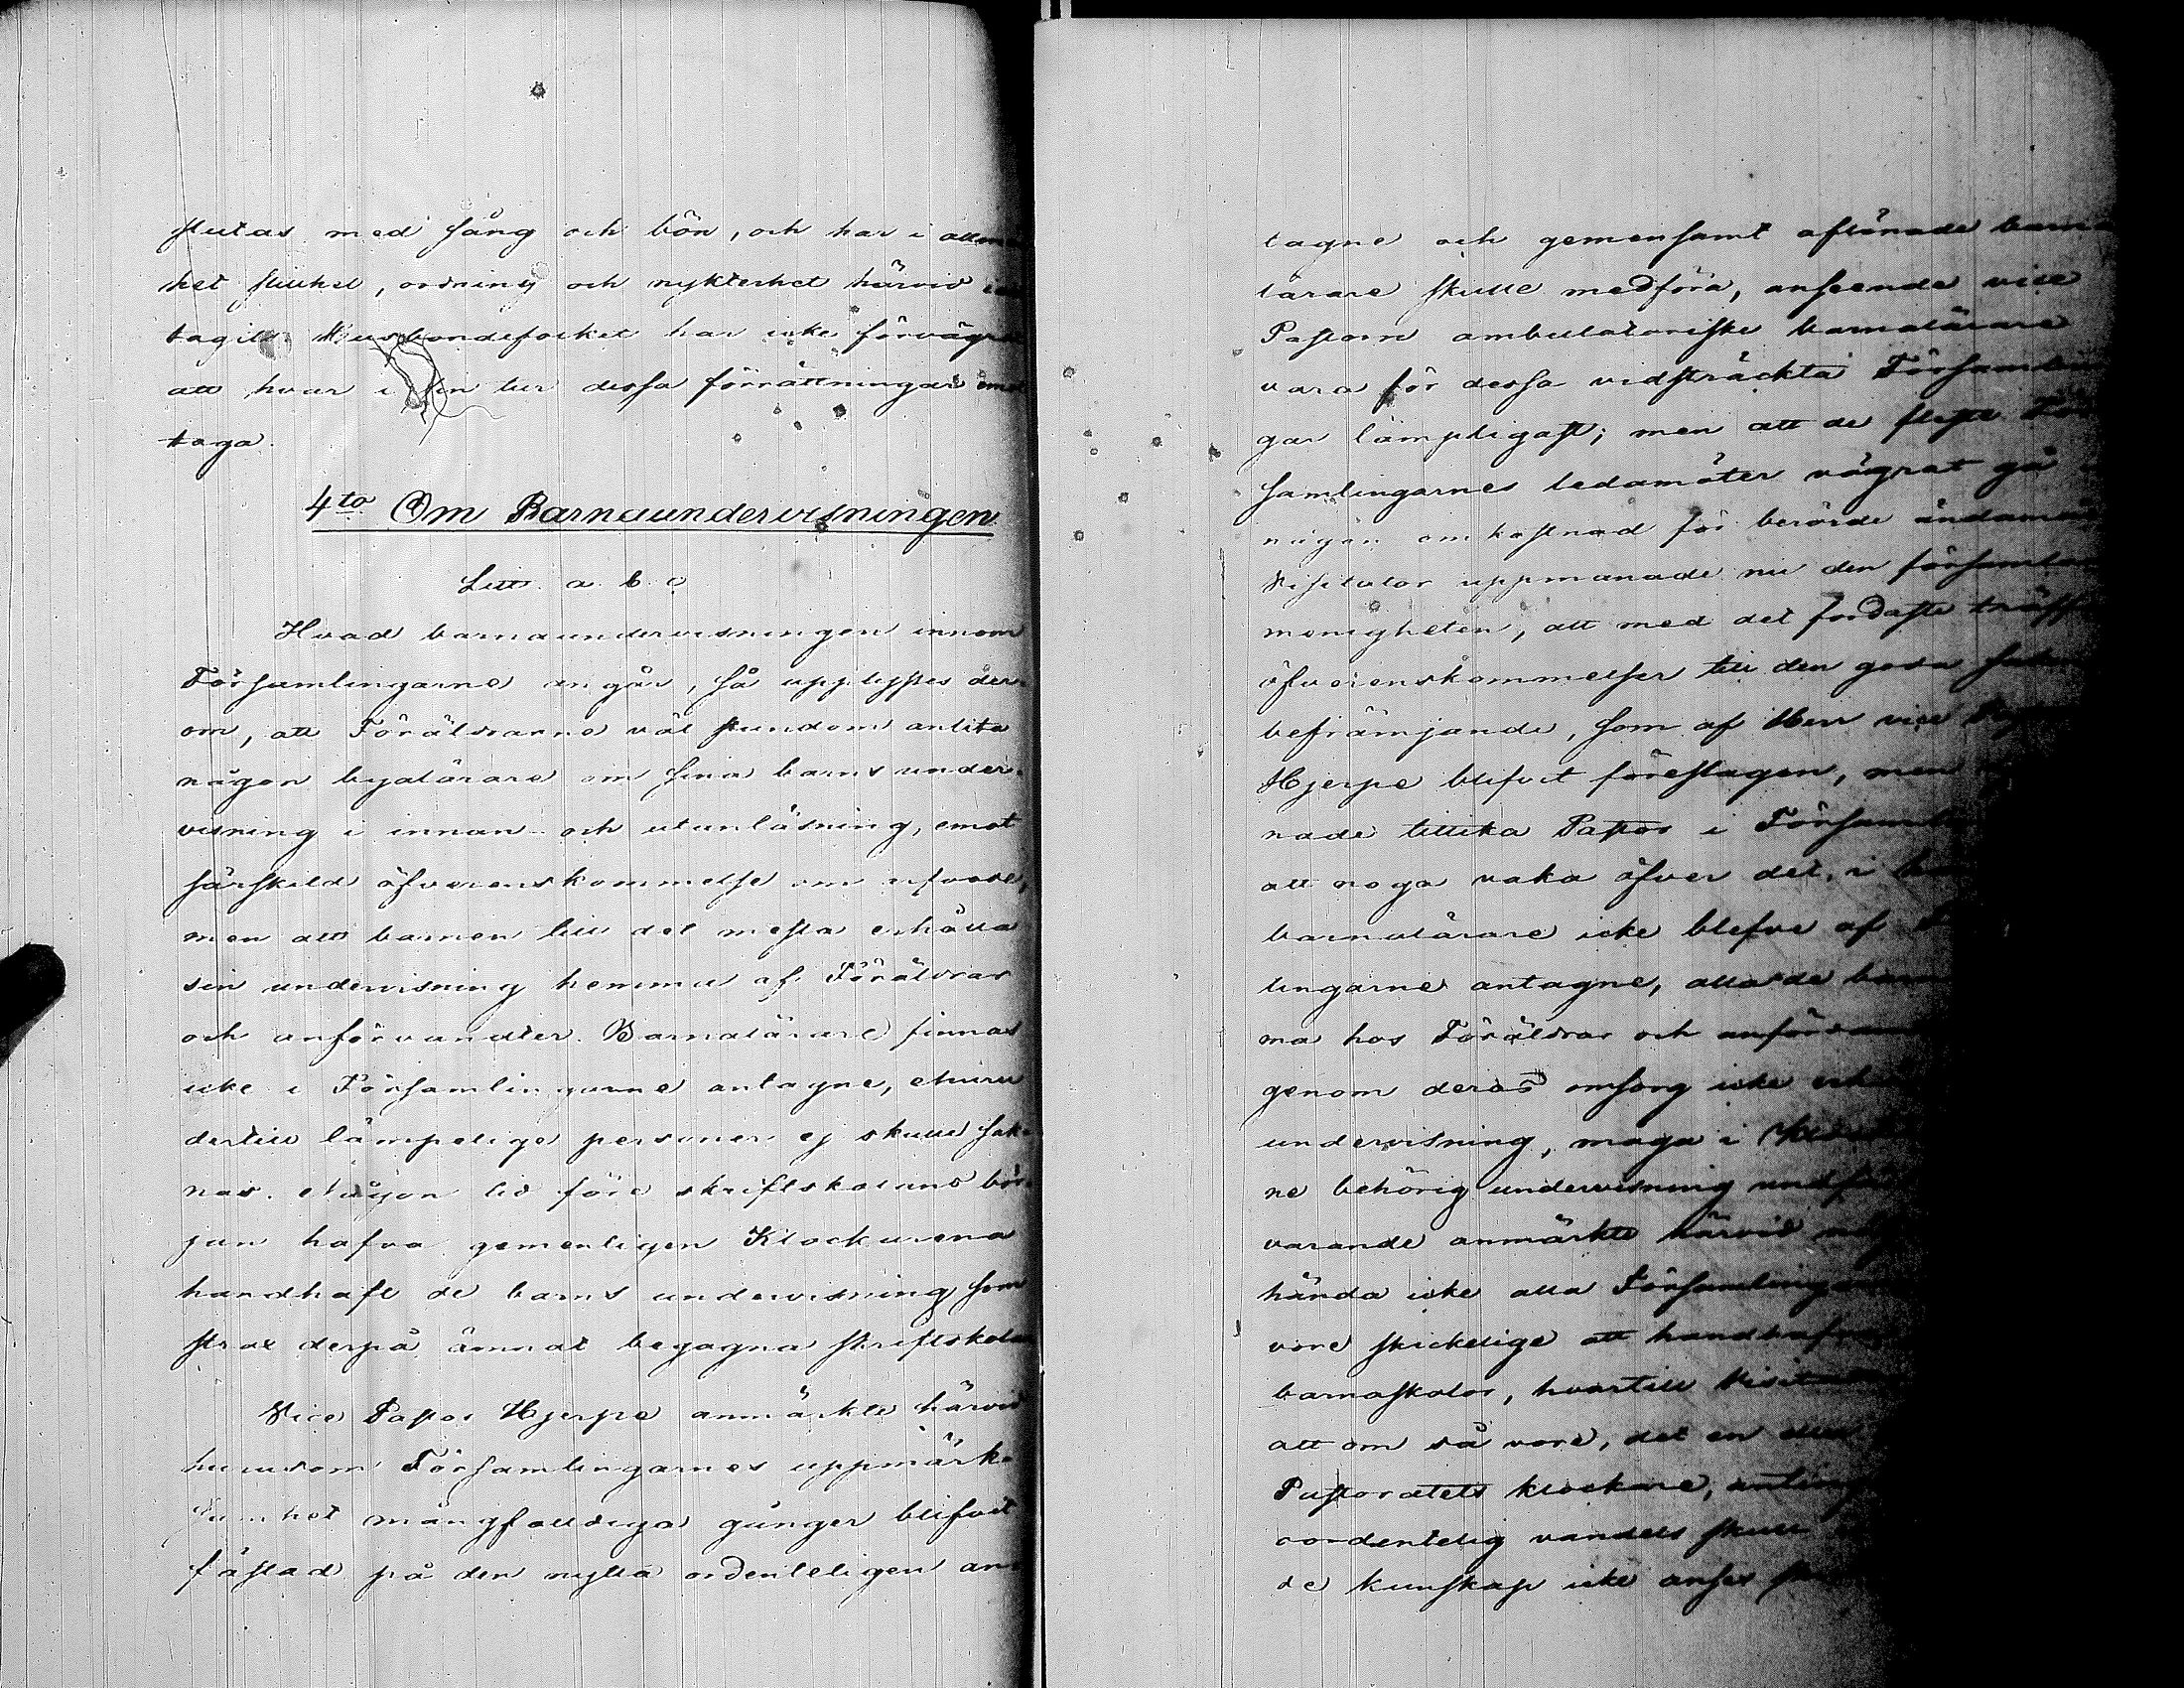 slutas med sång och bön, och har i allmän
het stillhet, ordning och nykterhet härvid
tagits. Husbondefolket har icke förvägrat
att hvar i sin tur dessa förrättningar emot
taga.
4to Om Barnaundervisningen
Litt. a. b. c
Hvad barnaundervisningen innom
Församlingarne angår, så upplystes der-
om, att Föräldrarne väl stundom anlita
någon byalärare om sina barns under-
visning i innan- och utanläsning, emot
särskild öfverenskommelse om arfvode,
men att barnen till det mesta erhålla
sin undervisning hemma af Föräldrar
och anförvandter. Barnalärare finnas
icke i Församlingarne antagne, ehuru
dertill lämpelige personer ej skulle sak-
nas. Någon tid före skriftskolans bör-
jan hafva gemenligen Klockarena
handhaft de barns undervisning som
strax derpå ämnat begagna skriftskolan
Vice Pastor Hjerpe anmärkte härvid
hurusom Församlingarnes uppmärk-
samhet mångfalldiga gånger blifvit
fästad på den nytta ordenteligen an
tagne och gemensamt aflönade barna
lärare skulle medföra, anseende vice
Pastorn ambulatoriske barnalärare
vara för dessa vidsträckta Församlin
gar lämpligast; men att de fleste För
samlingarnes ledamöter vägrat gå i
någon omkostnad för berörde ändamål
Visitator uppmanade nu den församlade
menigheten, att med det fordaste träffa
öfverenskommelser till den goda sakens
befrämjande, som af Herr vice Pastor
Hjerpe blifvit föreslagen, men
nade tillika Pastor i Församlin
att noga vaka öfver det, i
barnalärare icke blefve af
lingarne antagne, alla de barn
ma hos Föräldrar och anförvan
genom deras omsorg icke erhå
undervisning, måga i
ne behörig undervisning undfå
varande anmärkte härvid
hända icke alla Församlingar
vore skickelige att handhafva
barnaskolor, hvartill Visitator
att om så vore, det en eller
Pastoratets klockare, antingen
oordentelig vandels skull
de kunskap icke anses